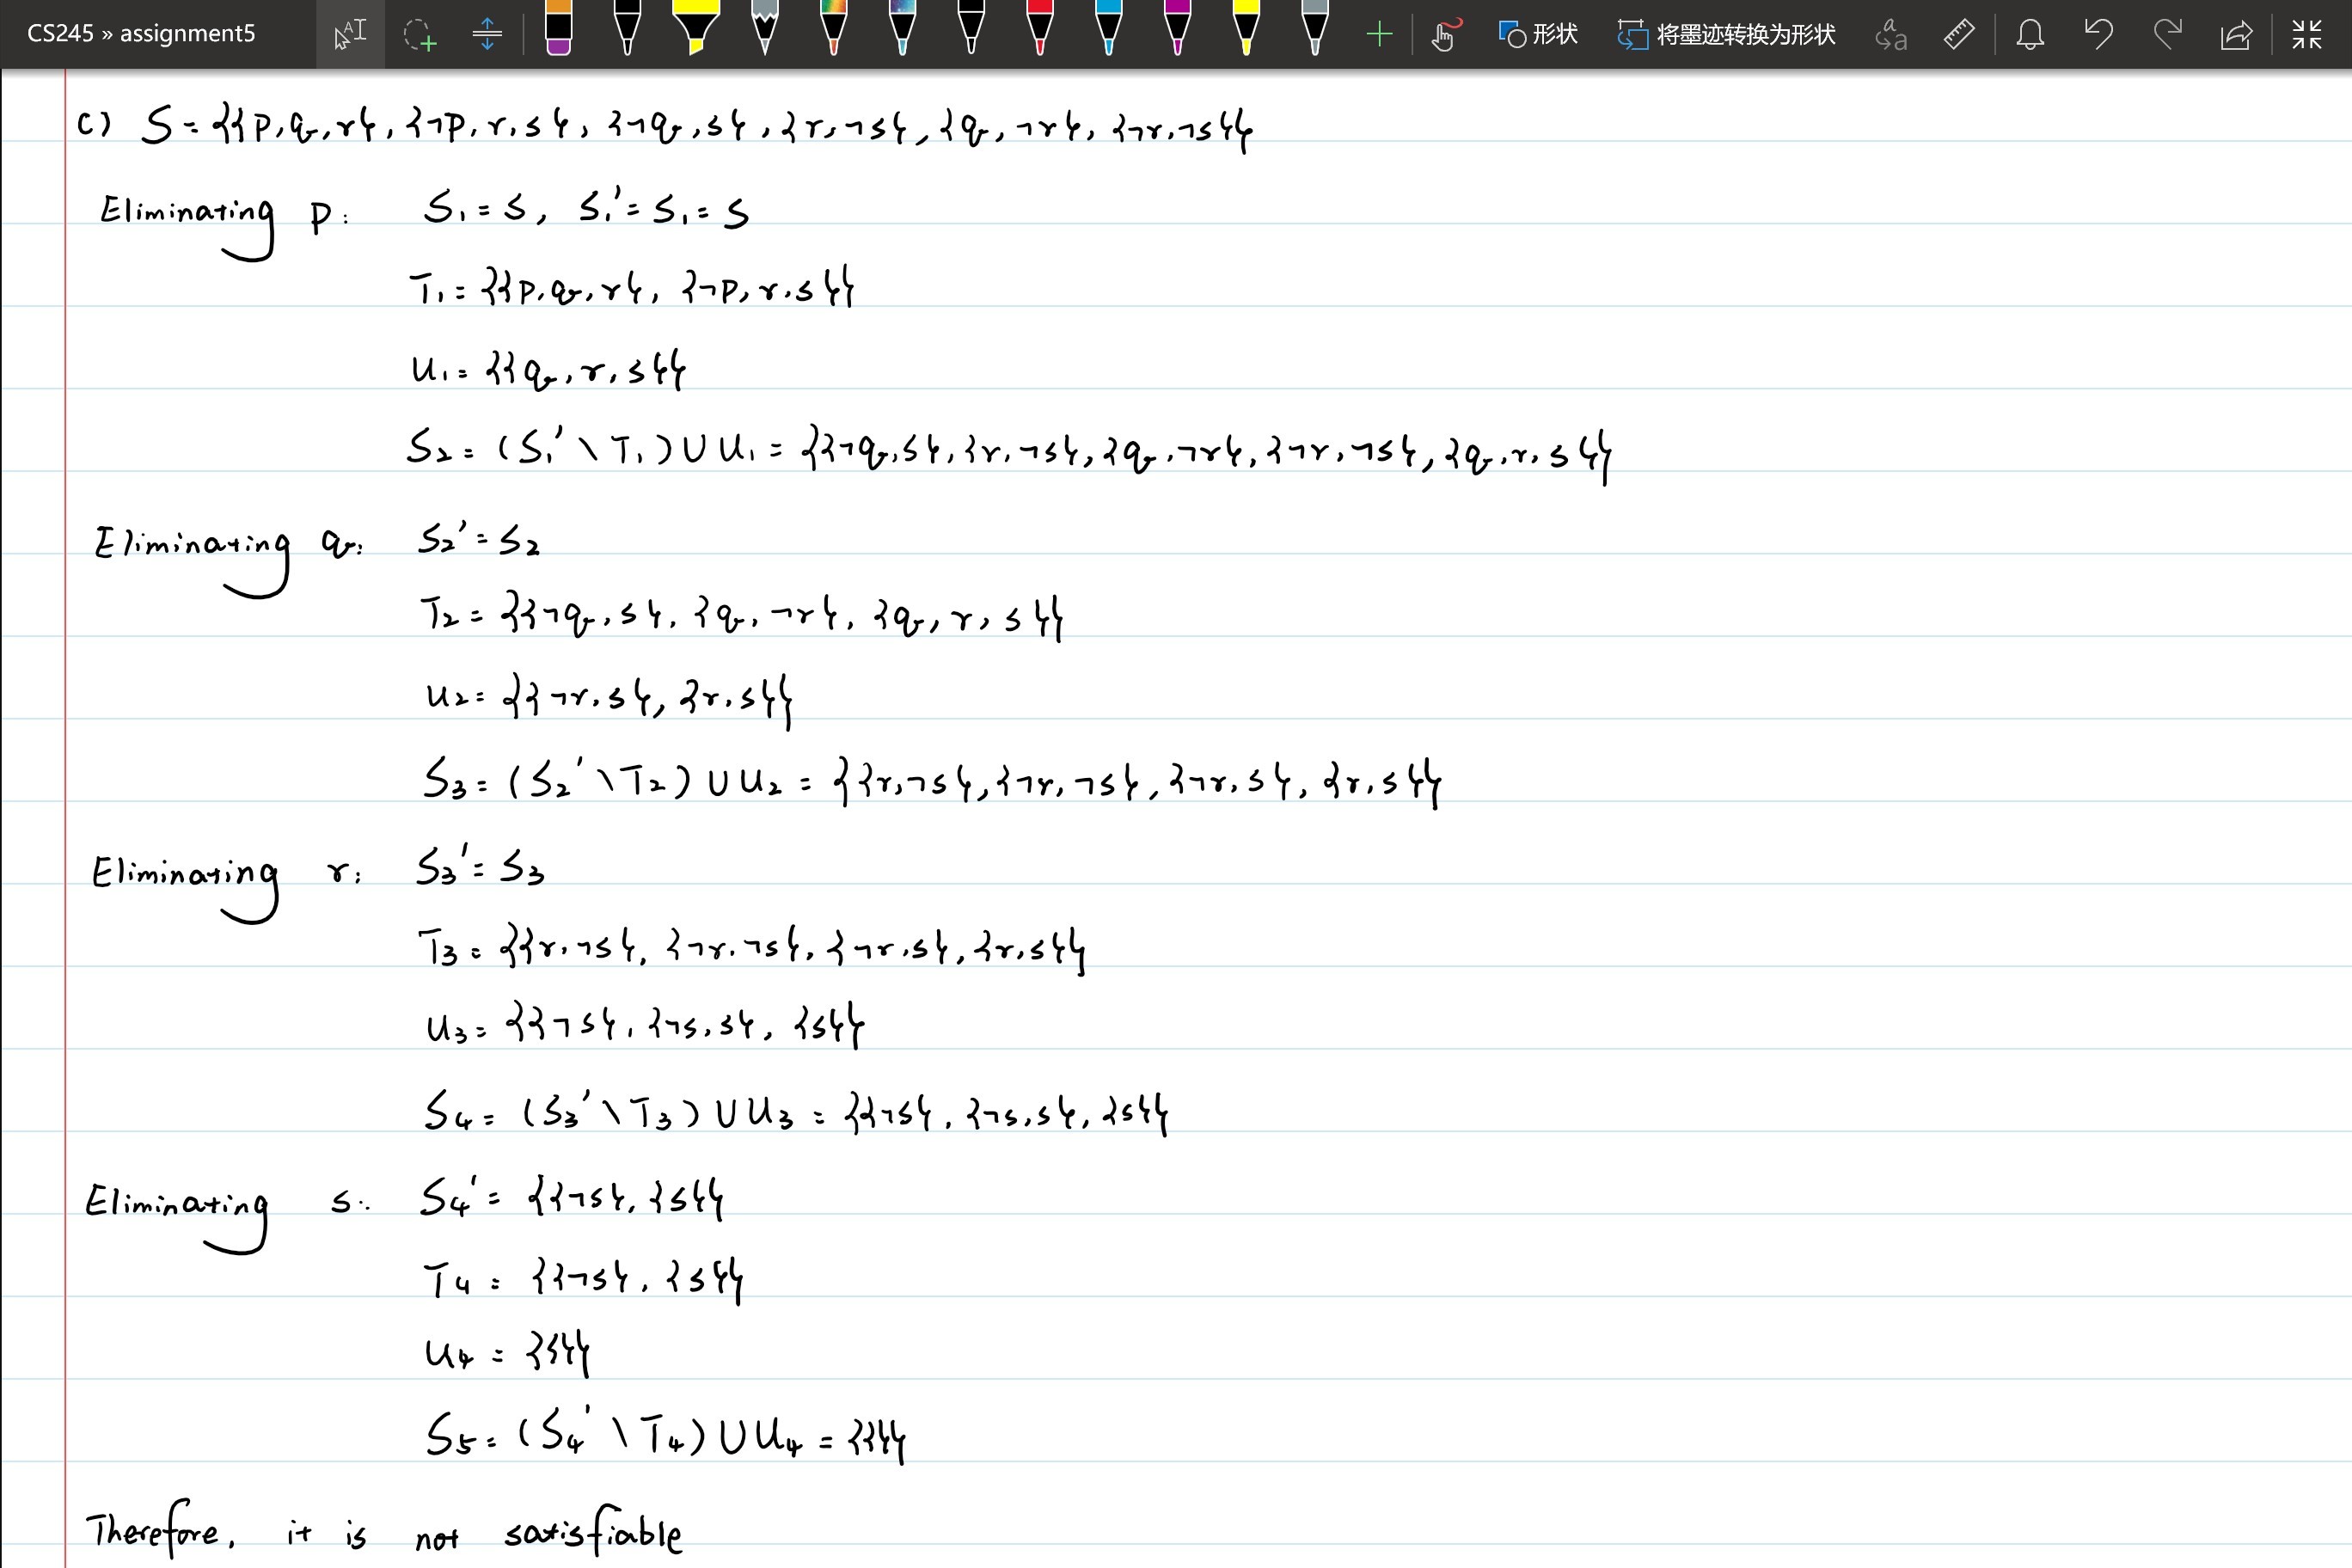 CS245 » assignment5 形状 将墨迹转换为形状
c) S = {{p, q, r}, {¬p, r, s}, {¬q, s}, {r, ¬s}, {q, ¬r}, {¬r, ¬s}}
Eliminating p: S₁ = S, S₁' = S₁ = S
T₁ = {{p, q, r}, {¬p, r, s}}
U₁ = {{q, r, s}}
S₂ = (S₁' \ T₁) ∪ U₁ = {{¬q, s}, {r, ¬s}, {q, ¬r}, {¬r, ¬s}, {q, r, s}}
Eliminating q: S₂' = S₂
T₂ = {{¬q, s}, {q, ¬r}, {q, r, s}}
U₂ = {{¬r, s}, {r, s}}
S₃ = (S₂' \ T₂) ∪ U₂ = {{r, ¬s}, {¬r, ¬s}, {¬r, s}, {r, s}}
Eliminating r: S₃' = S₃
T₃ = {{r, ¬s}, {¬r, ¬s}, {¬r, s}, {r, s}}
U₃ = {{¬s}, {¬s, s}, {s}}
S₄ = (S₃' \ T₃) ∪ U₃ = {{¬s}, {¬s, s}, {s}}
Eliminating s: S₄' = {{¬s}, {s}}
T₄ = {{¬s}, {s}}
U₄ = {{}}
S₅ = (S₄' \ T₄) ∪ U₄ = {{}}
Therefore, it is not satisfiable